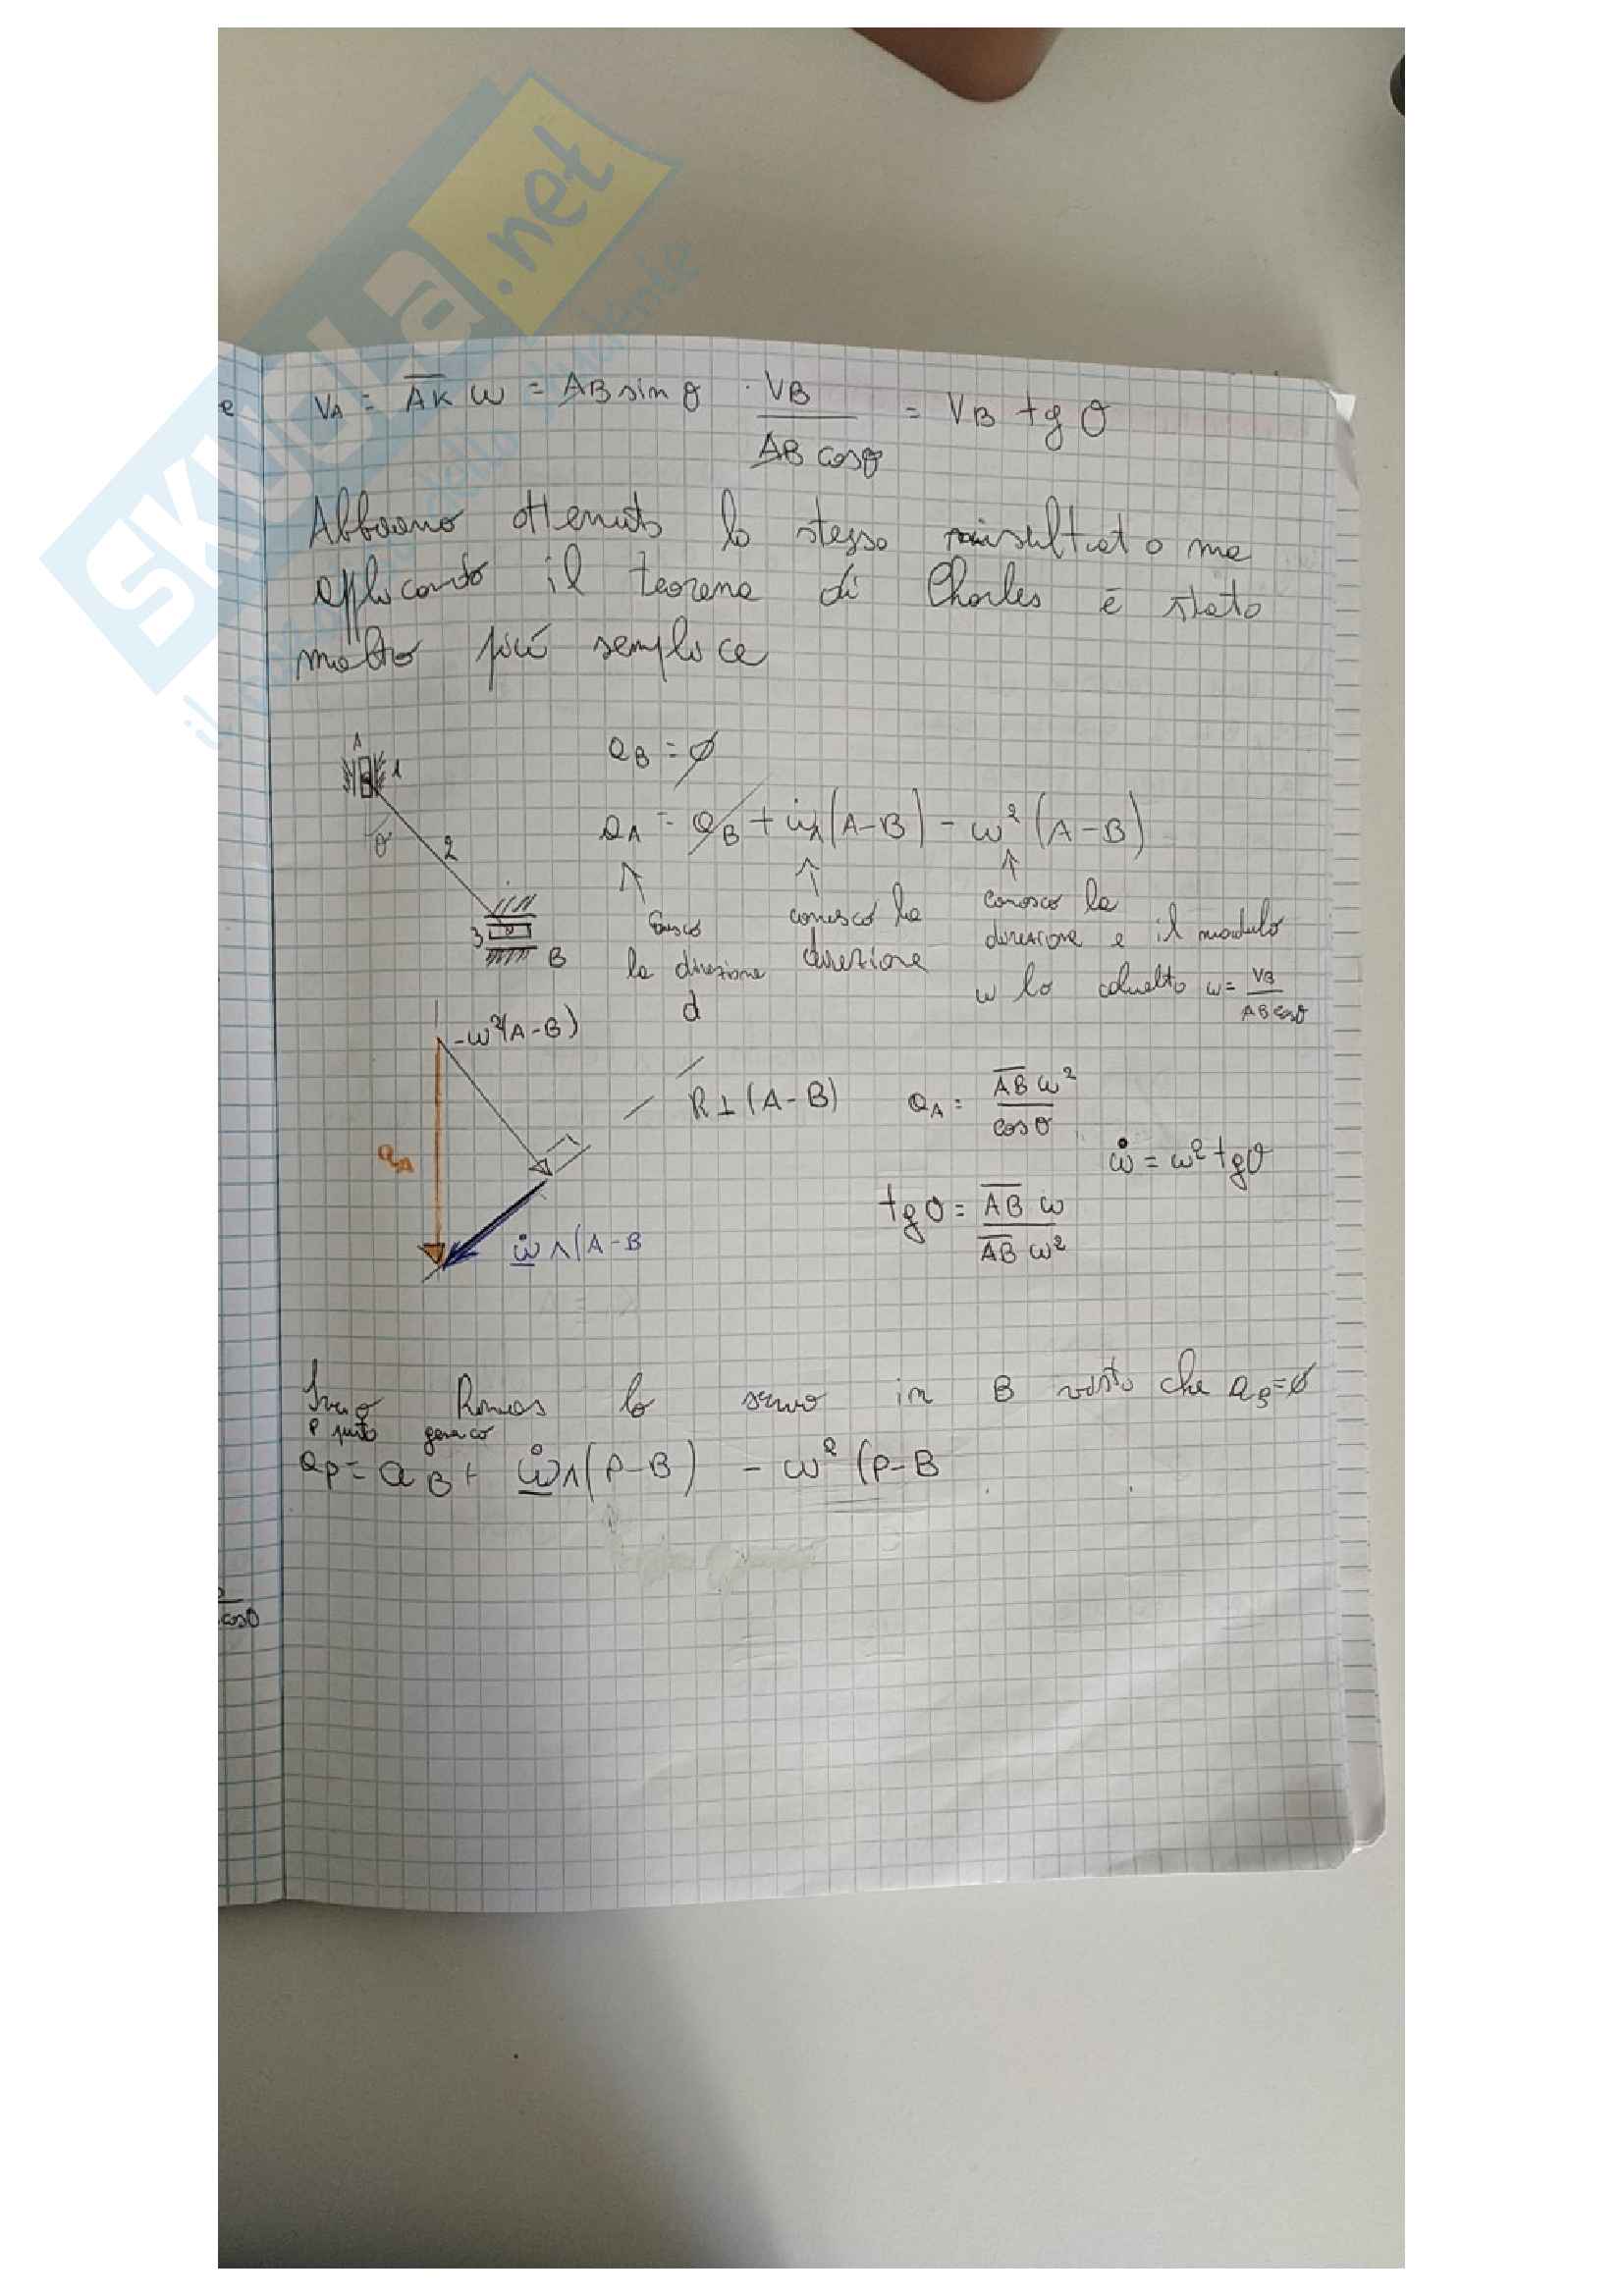 SKUOLA.net
e
VA = AK ω = AB sin θ · VB / AB cosθ = VB tg θ
Abbiamo ottenuto lo stesso risultato ma
applicando il teorema di Charles è stato
molto più semplice
A
1
aB = ∅
θ
2
aA = aB + ω̇ ∧ (A-B) - ω² (A-B)
3
B
conosco la direzione
d
conosco la direzione
conosco la direzione e il modulo
ω lo calcolato ω = VB / AB cosθ
-ω²(A-B)
R ⊥ (A-B)
aA = AB ω² / cosθ
ω̇ = ω² tgθ
aA
tgθ = AB ω / AB ω²
ω̇ ∧ (A-B
lo in B visto che aB=∅
P punto
aP = aB + ω̇ ∧ (P-B) - ω² (P-B
cosθ